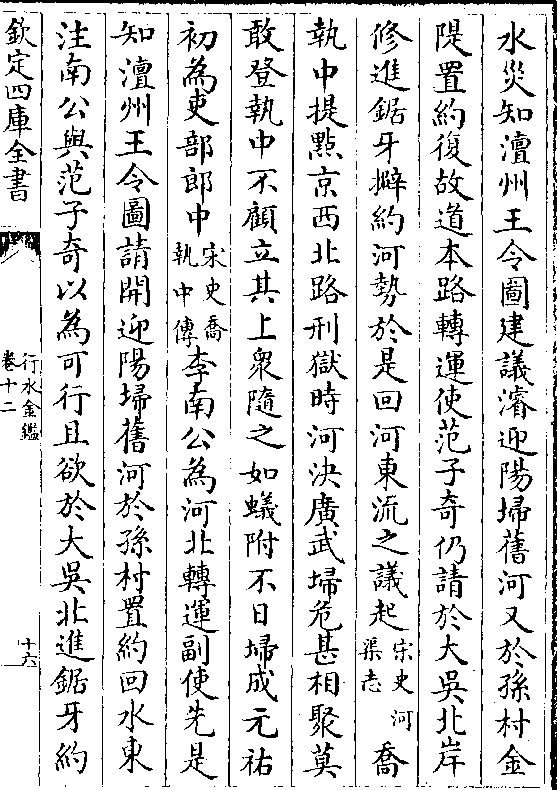 水災知澶州王令圖建議濬迎陽埽舊河又於孫村金
隄置約復故道本路轉運使范子奇仍請於大吳北岸
修進鋸牙擗約河勢於是回河東流之議起宋史河渠志喬
執中提點京西北路刑獄時河決廣武埽危甚相聚莫
敢登執中不顧立其上衆隨之如蟻附不日埽成元祐
初為吏部郎中宋史喬執中傳李南公為河北轉運副使先是
知澶州王令圖請開迎陽埽舊河於孫村置約回水東
注南公與范子奇以為可行且欲於大吳北進鋸牙約
欽定四庫全書
行水金鑑
卷十二
十六